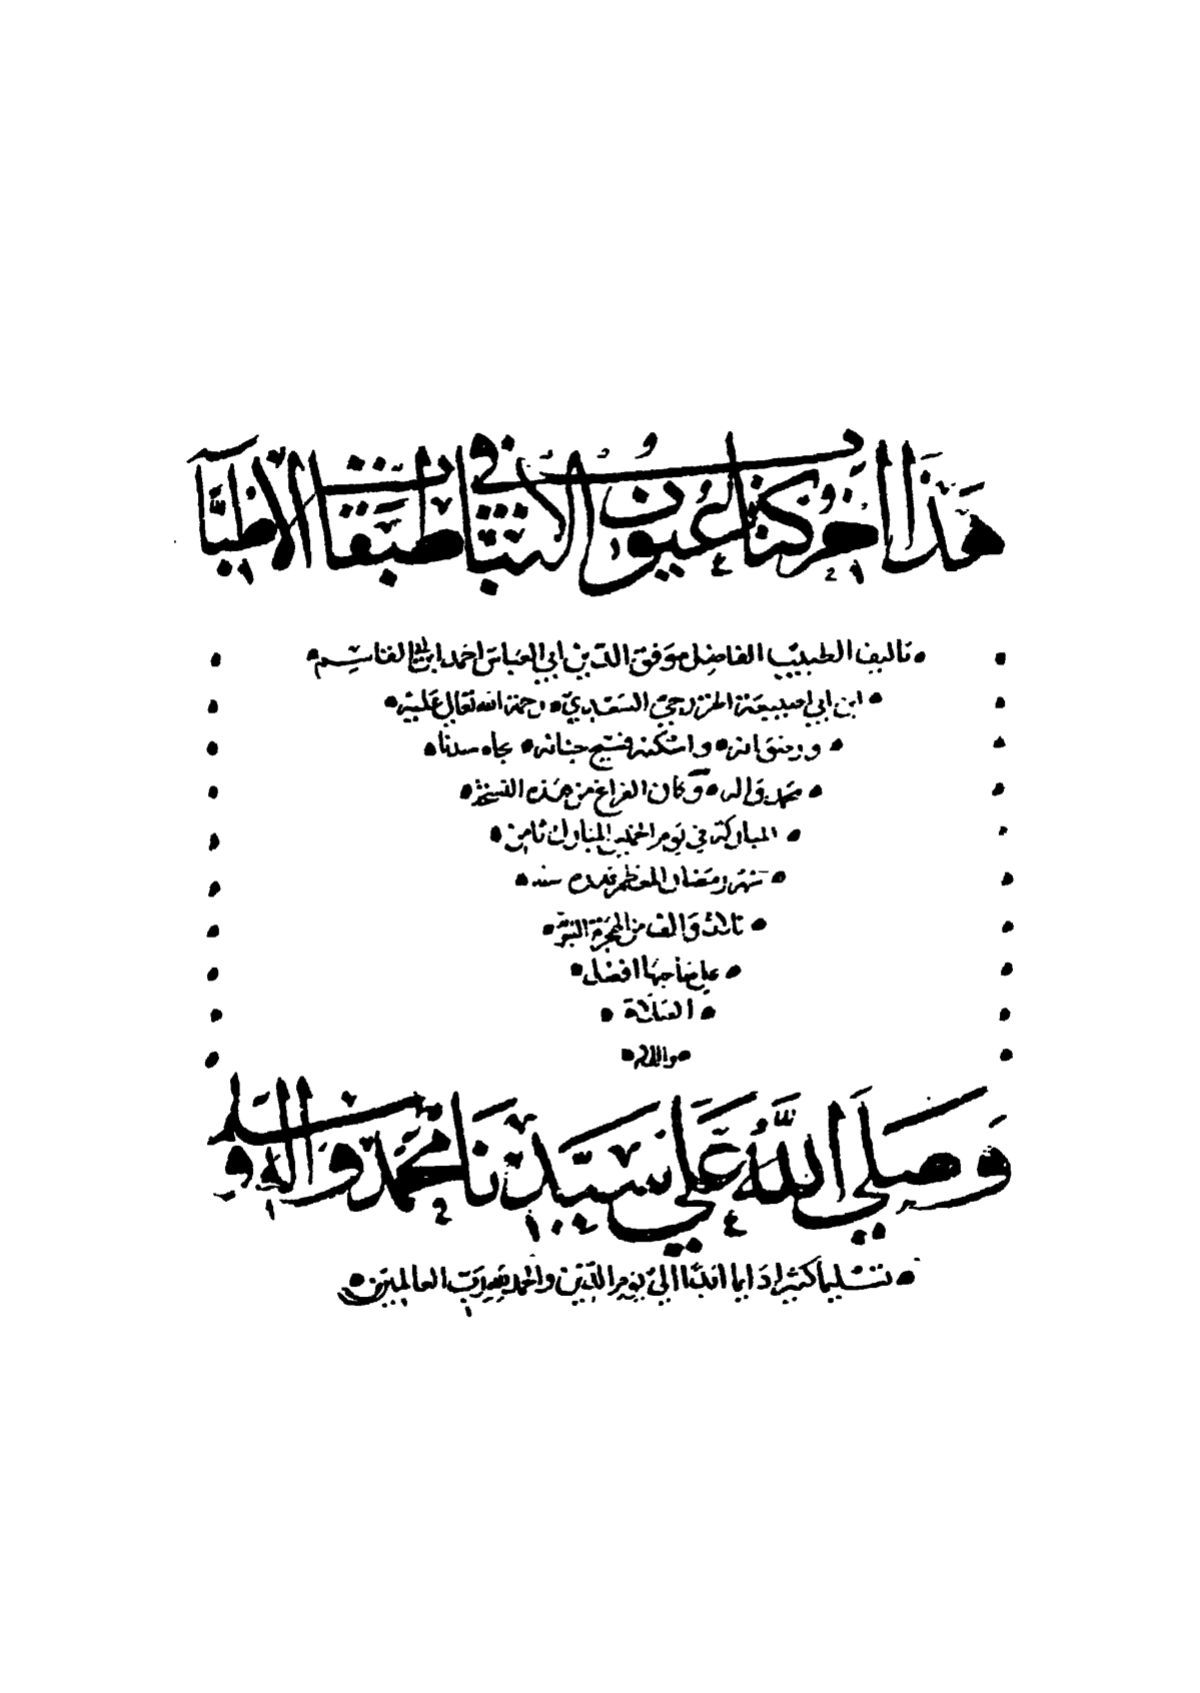 هَذَا اخِرُ كتاب عُيُون الانبَاء في طَبَقَات الاطِبَّآ
تاليف الطبيب الفاضل موفق الدين ابي العباس احمد ابن ابي القاسم
ابن ابي اصيبعة الخزرجي السعدي رحمة الله تعالي عليه
ورضوانه واسكنه فسيح جنانه بجاه سيدنا
محمد واله وكان الفراغ من هذه النسخة
المباركة في يوم الخميس المبارك ثامن
شهر رمضان المعظم قدره سنة
ثلاث والف من الهجرة النبوية
علي صاحبها افضل
الصلاة
والسلام
وَصَلَّي اللَّهُ عَلَي سَيِّدِنَا مُحَمَّدٍ وَالِهِ وَسَلَّم
تسليما كثيرا دايما ابدا الي يوم الدين والحمد لله رب العالمين